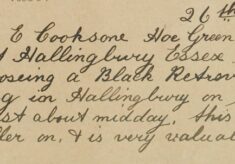 26th
E Cooksone Hoe Green
Hallingbury Essex
osing a Black Retrev
g in Hallingbury on
st about midday, this
ler on, & is very valuab